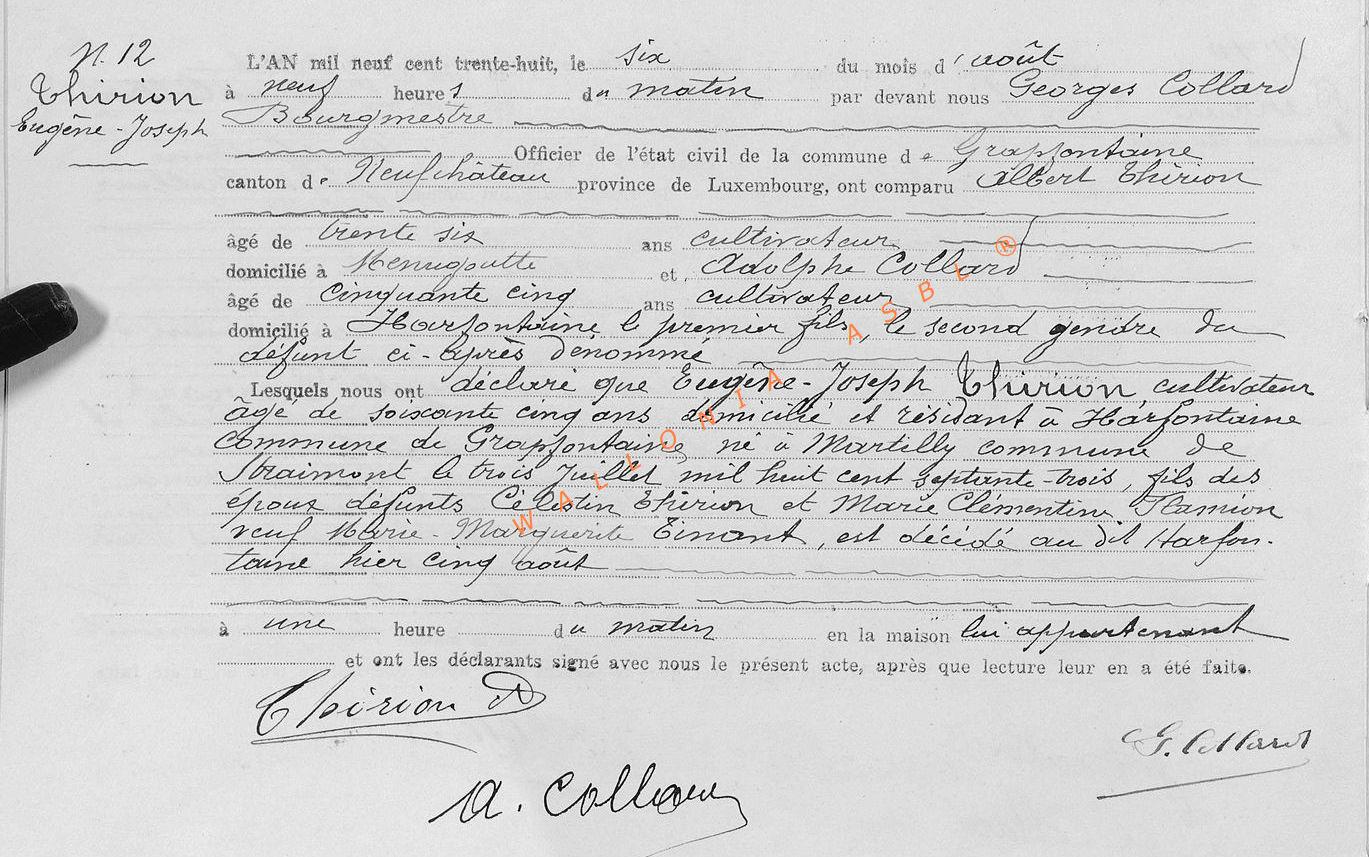 N. 12
Thirion
Eugêne-Joseph
L'AN mil neuf cent trente-huit, le six du mois d'août
à neuf heures du matin par devant nous Georges Collard
Bourgmestre
Officier de l'état civil de la commune de Grapfontaine
canton de Neufchâteau province de Luxembourg, ont comparu Albert Thirion
âgé de trente six ans cultivateur
domicilié à Menugoutte et Adolphe Collard
âgé de cinquante cinq ans cultivateur
domicilié à Harfontaine le premier fils, le second gendre du
défunt ci-après dénommé
Lesquels nous ont déclaré que Eugêne-Joseph Thirion, cultivateur
âgé de soixante cinq ans domicilié et résidant à Harfontaine
commune de Grapfontaine, né à Martilly commune de
Straimont le trois Juillet mil huit cent septante-trois, fils des
époux défunts Célestin Thirion et Marie Clémentine Hamion
veuf Marie-Marguerite Tinant, est décédé au dit Harfon-
taine hier cinq août
à une heure du matin en la maison lui appartenant
et ont les déclarants signé avec nous le présent acte, après que lecture leur en a été faite.
Thirion A
G. Collard
A. Collard
WALLONIA ASBL ®